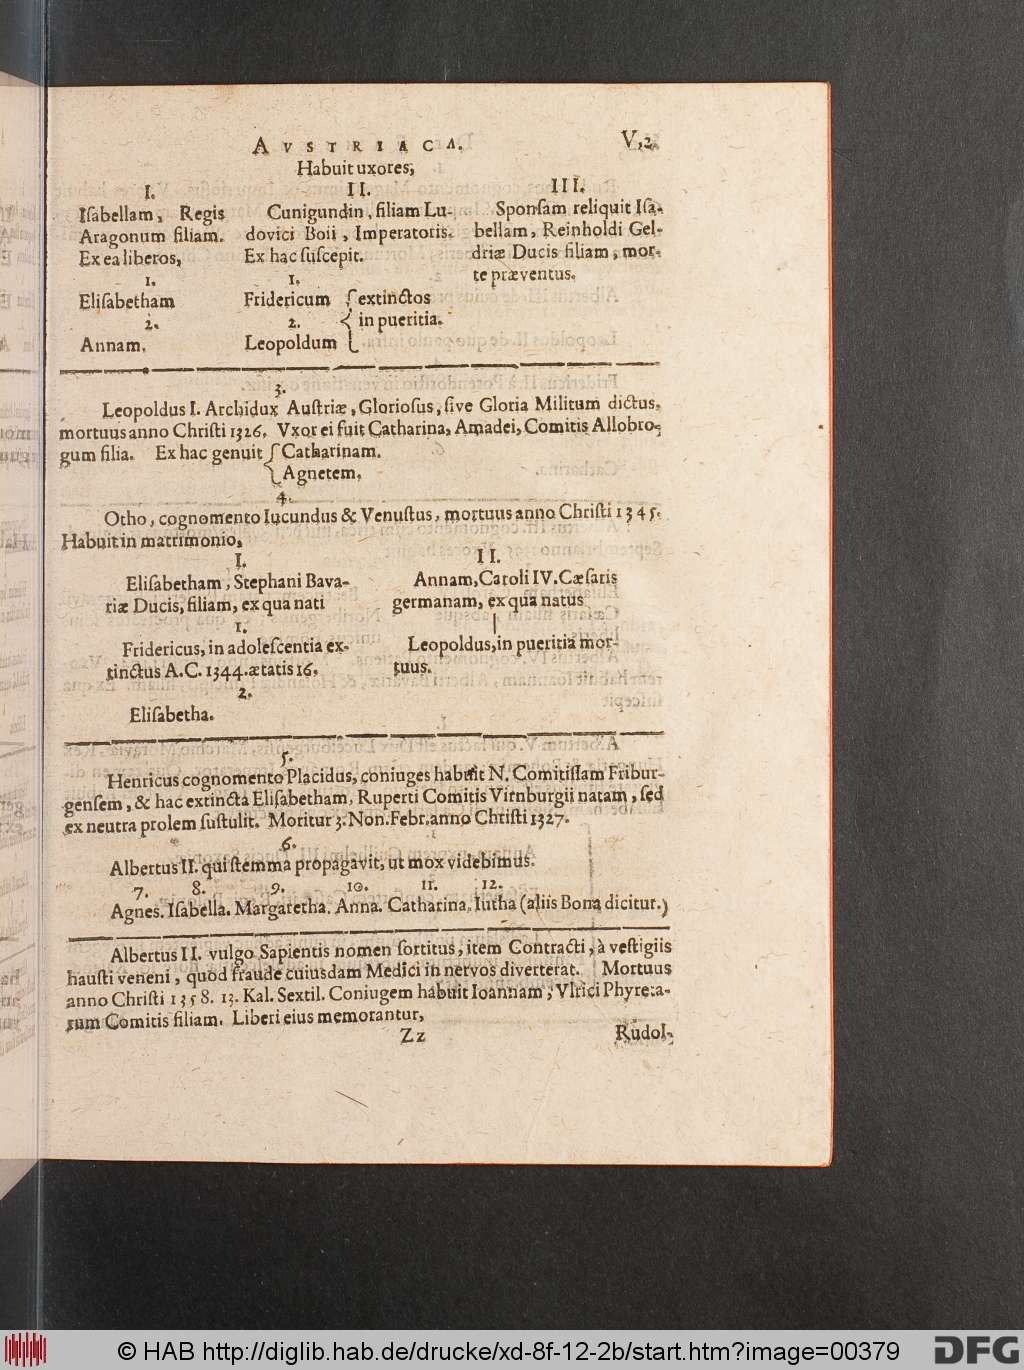 AVSTRIACA. V, 2.
Habuit uxores,
I. II. III.
Iſabellam, Regis
Aragonum filiam.
Ex ea liberos,
1.
Eliſabetham
2.
Annam.
Cunigundin, filiam Lu-
dovici Boii, Imperatoris.
Ex hac ſuſcepit.
1.
Fridericum { extinctos
2. in pueritia.
Leopoldum
Sponſam reliquit Iſa-
bellam, Reinholdi Gel-
driæ Ducis filiam, mor-
te præventus.
3.
Leopoldus I. Archidux Auſtriæ, Glorioſus, ſive Gloria Militum dictus,
mortuus anno Chriſti 1326. Vxor ei fuit Catharina, Amadei, Comitis Allobro-
gum filia. Ex hac genuit { Catharinam.
Agnetem.
4.
Otho, cognomento Iucundus & Venuſtus, mortuus anno Chriſti 1345.
Habuit in matrimonio,
I.
Eliſabetham, Stephani Bava-
riæ Ducis, filiam, ex qua nati
1.
Fridericus, in adoleſcentia ex-
tinctus A.C. 1344. ætatis 16.
2.
Eliſabetha.
II.
Annam, Caroli IV. Cæſaris
germanam, ex qua natus
|
Leopoldus, in pueritia mor-
tuus.
5.
Henricus cognomento Placidus, coniuges habuit N. Comitiſſam Fribur-
genſem, & hac extincta Eliſabetham, Ruperti Comitis Virnburgii natam, ſed
ex neutra prolem ſuſtulit. Moritur 3. Non. Febr. anno Chriſti 1327.
6.
Albertus II. qui ſtemma propagavit, ut mox videbimus.
7. 8. 9. 10. 11. 12.
Agnes. Iſabella. Margaretha. Anna. Catharina. Iutha (aliis Bona dicitur.)
Albertus II. vulgo Sapientis nomen ſortitus, item Contracti, à veſtigiis
hauſti veneni, quod fraude cuiusdam Medici in nervos diverterat. Mortuus
anno Chriſti 1358. 13. Kal. Sextil. Coniugem habuit Ioannam, Vlrici Phyreta-
rum Comitis filiam. Liberi eius memorantur,
Zz Rudol-
© HAB http://diglib.hab.de/drucke/xd-8f-12-2b/start.htm?image=00379
DFG